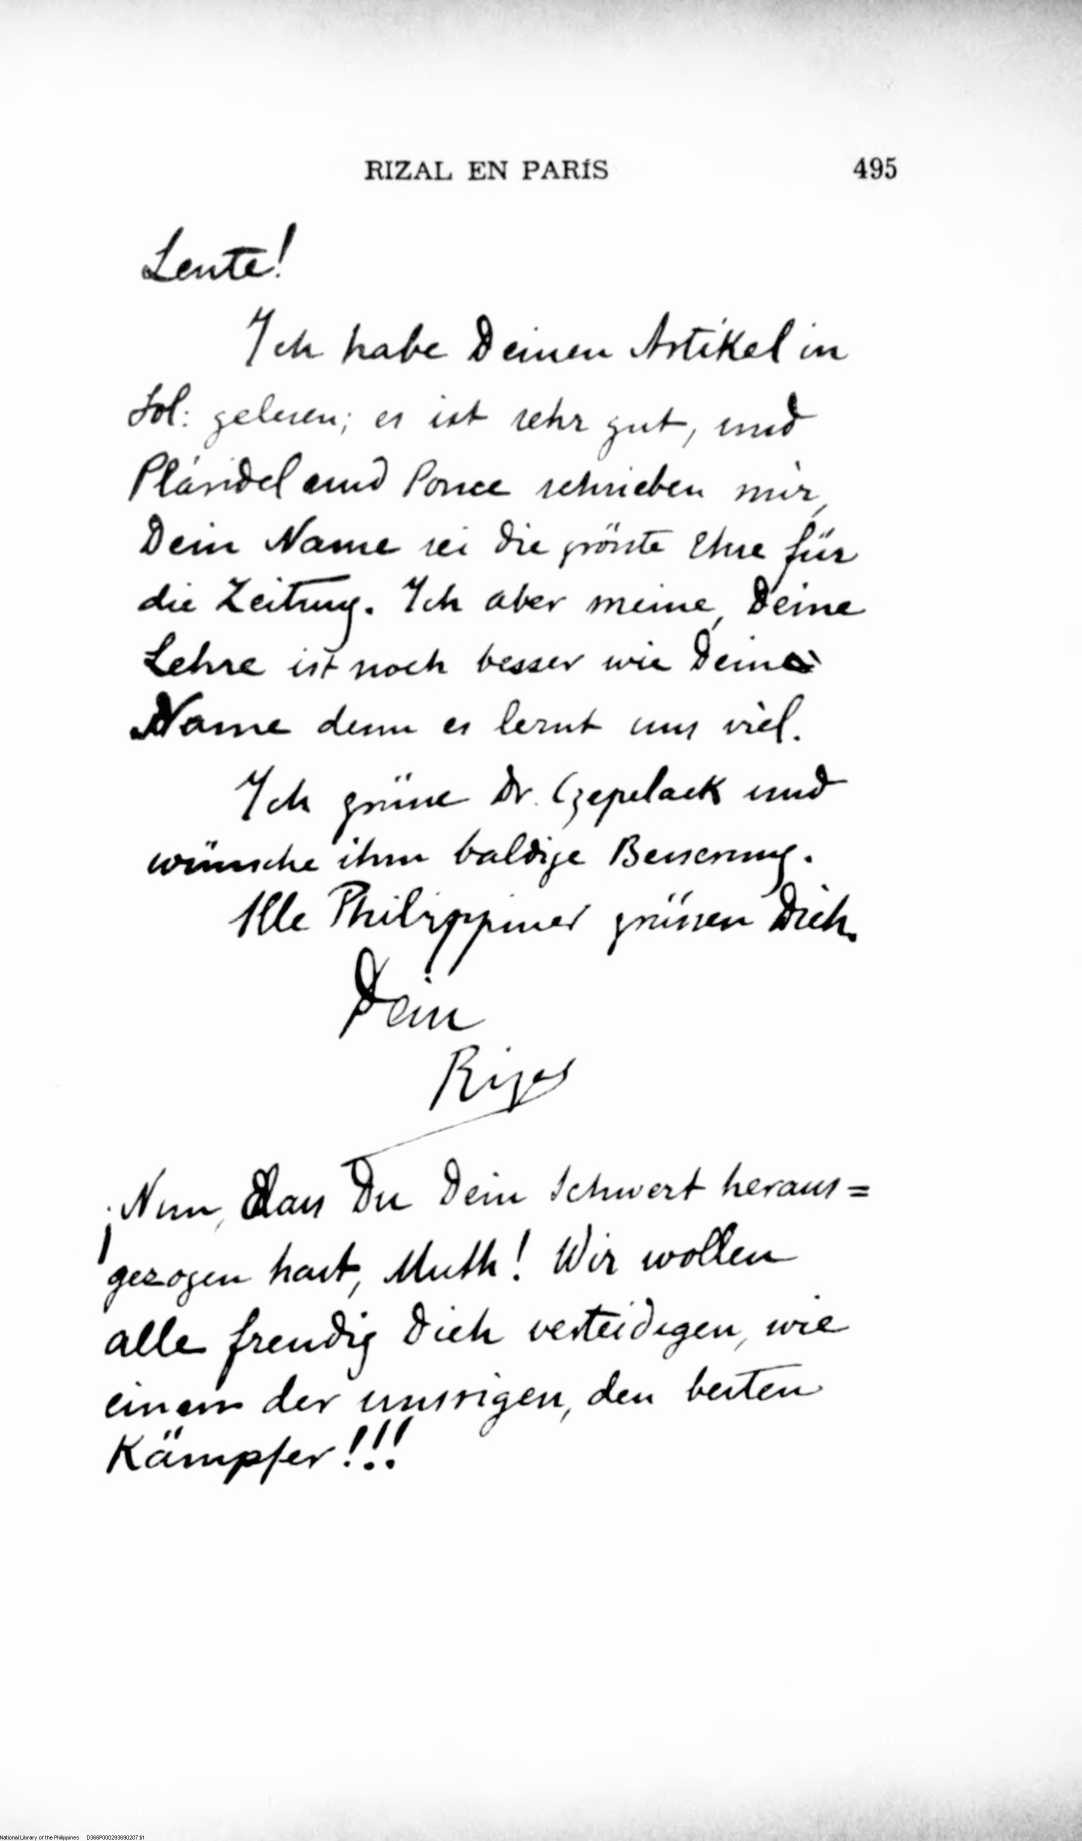 RIZAL EN PARÍS 495
Leute!
Ich habe Deinen Artikel in
Sol: gelesen; es ist sehr gut, und
Pláridel und Ponce schrieben mir,
Dein Name sei die grösste Ehre für
die Zeitung. Ich aber meine, Deine
Lehre ist noch besser wie Dein
Name denn es lernt uns viel.
Ich grüsse Dr. Czepelack und
wünsche ihm baldige Besserung.
Alle Philippiner grüssen Dich.
Dein
Rizal
¡Nun, dass Du Dein Schwert heraus=
gezogen hast, Muth! Wir wollen
alle freudig Dich verteidigen, wie
einem der unsrigen, den besten
Kämpfer!!!
National Library of the Philippines